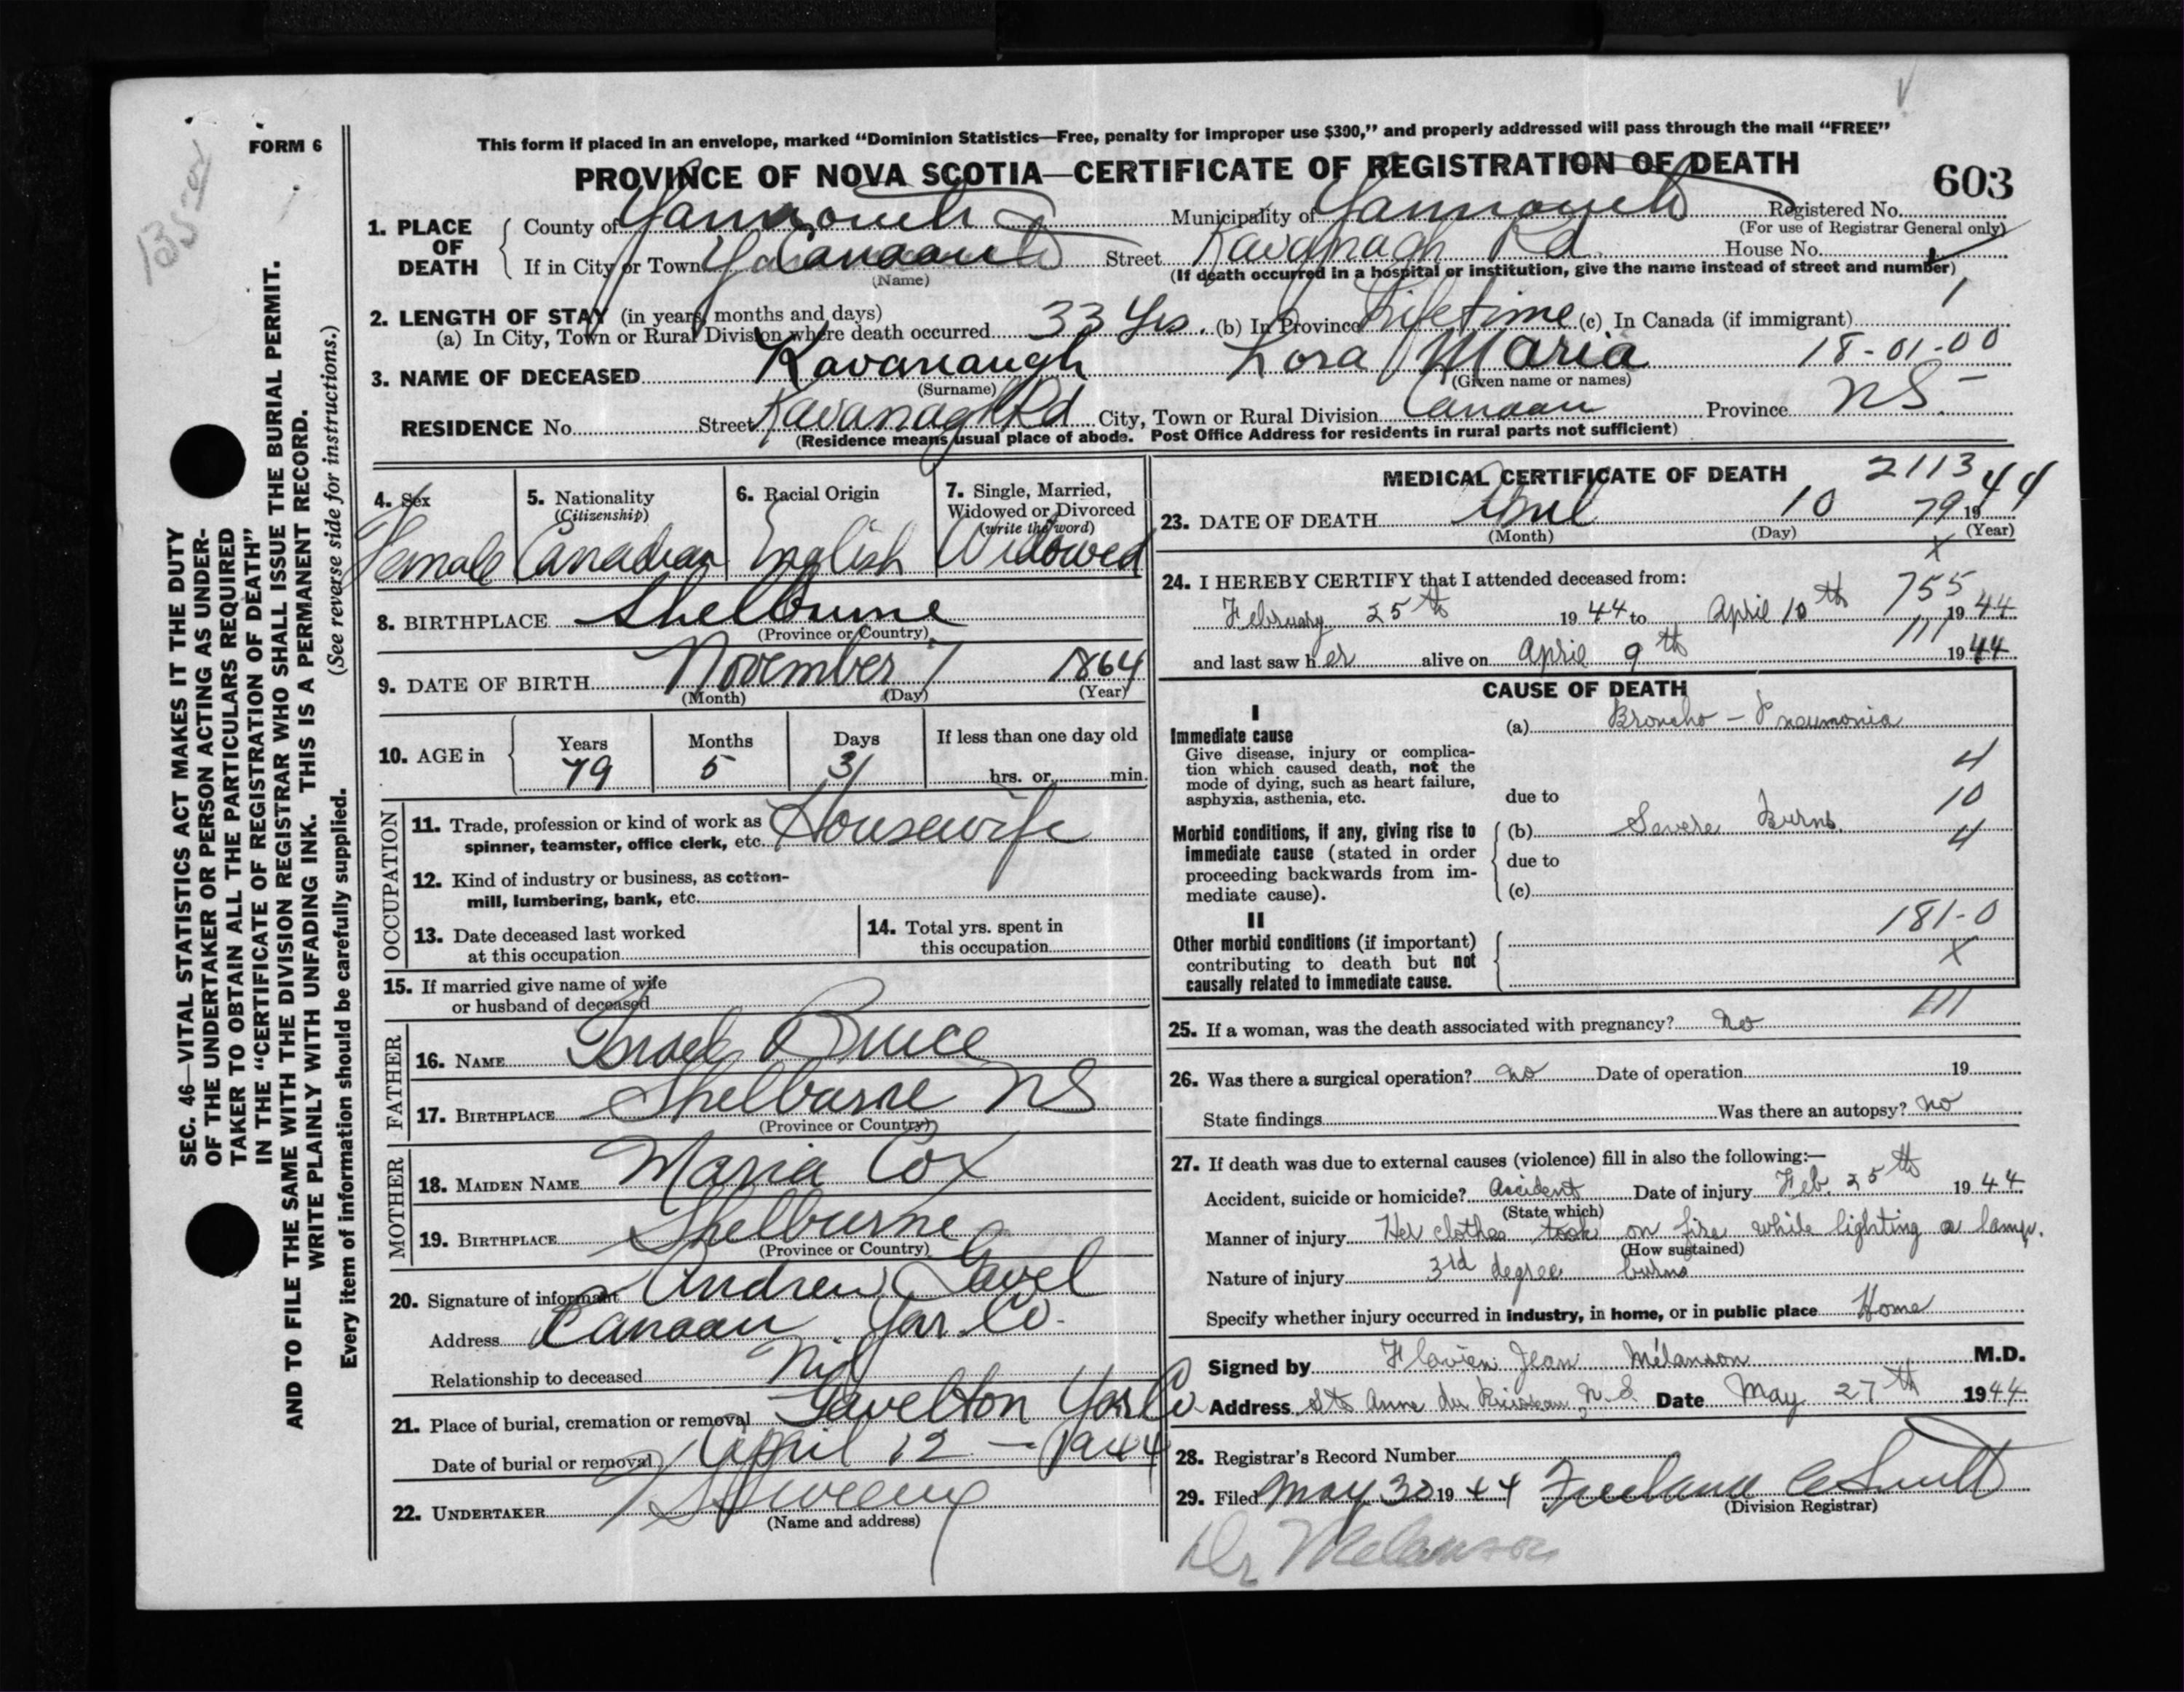 FORM 6
This form if placed in an envelope, marked “Dominion Statistics—Free, penalty for improper use $300,” and properly addressed will pass through the mail “FREE”
PROVINCE OF NOVA SCOTIA—CERTIFICATE OF REGISTRATION OF DEATH
603
1. PLACE OF DEATH
County of Yarmouth Municipality of Yarmouth Registered No.
(For use of Registrar General only)
If in City or Town Canaan Street Kavanagh Rd. House No.
(Name)
(If death occurred in a hospital or institution, give the name instead of street and number)
2. LENGTH OF STAY (in years, months and days)
(a) In City, Town or Rural Division where death occurred 33 Yrs. (b) In Province Lifetime (c) In Canada (if immigrant)
3. NAME OF DECEASED Kavanaugh Lora Maria 18-01-00
(Surname) (Given name or names)
RESIDENCE No. Street Kavanagh Rd City, Town or Rural Division Canaan Province NS.
(Residence means usual place of abode. Post Office Address for residents in rural parts not sufficient)
4. Sex
Female
5. Nationality
(Citizenship)
Canadian
6. Racial Origin
English
7. Single, Married, Widowed or Divorced
(write the word)
Widowed
8. BIRTHPLACE Shelburne
(Province or Country)
9. DATE OF BIRTH November 7 1864
(Month) (Day) (Year)
10. AGE in Years Months Days If less than one day old
79 5 3 hrs. or min.
OCCUPATION
11. Trade, profession or kind of work as Housewife
spinner, teamster, office clerk, etc.
12. Kind of industry or business, as cotton-
mill, lumbering, bank, etc.
13. Date deceased last worked
at this occupation
14. Total yrs. spent in
this occupation
15. If married give name of wife
or husband of deceased
FATHER
16. NAME Israel Bruce
17. BIRTHPLACE Shelburne NS
(Province or Country)
MOTHER
18. MAIDEN NAME Maria Cox
19. BIRTHPLACE Shelburne
(Province or Country)
20. Signature of informant Andrew Gavel
Address Canaan Yar. Co.
Relationship to deceased Nil
21. Place of burial, cremation or removal Gavelton Yar Co
Date of burial or removal April 12 - 1944
22. UNDERTAKER Sweeny
(Name and address)
MEDICAL CERTIFICATE OF DEATH 2113
23. DATE OF DEATH April 10 1944
(Month) (Day) (Year)
79
X
24. I HEREBY CERTIFY that I attended deceased from:
755
February 25th 1944 to April 10th 1944
111
and last saw her alive on April 9th 1944
CAUSE OF DEATH
I
Immediate cause
Give disease, injury or complica-
tion which caused death, not the
mode of dying, such as heart failure,
asphyxia, asthenia, etc.
(a) Broncho-Pneumonia
4
due to
10
Morbid conditions, if any, giving rise to
immediate cause (stated in order
proceeding backwards from im-
mediate cause).
(b) Severe Burns.
4
due to
(c)
II
181-0
Other morbid conditions (if important)
contributing to death but not
causally related to immediate cause.
X
111
25. If a woman, was the death associated with pregnancy? No
26. Was there a surgical operation? No Date of operation 19
State findings Was there an autopsy? No
27. If death was due to external causes (violence) fill in also the following:—
Accident, suicide or homicide? Accident Date of injury Feb. 25th 1944
(State which)
Manner of injury Her clothes took on fire while lighting a lamp.
(How sustained)
Nature of injury 3rd degree burns
Specify whether injury occurred in industry, in home, or in public place Home
Signed by Flavien Jean Mélanson M.D.
Address Ste Anne du Ruisseau, N.S. Date May 27th 1944
28. Registrar's Record Number
29. Filed May 30 1944 Freeland Smith
(Division Registrar)
Dr Melanson
SEC. 46—VITAL STATISTICS ACT MAKES IT THE DUTY
OF THE UNDERTAKER OR PERSON ACTING AS UNDER-
TAKER TO OBTAIN ALL THE PARTICULARS REQUIRED
IN THE “CERTIFICATE OF REGISTRATION OF DEATH”
AND TO FILE THE SAME WITH THE DIVISION REGISTRAR WHO SHALL ISSUE THE BURIAL PERMIT.
WRITE PLAINLY WITH UNFADING INK. THIS IS A PERMANENT RECORD.
Every item of information should be carefully supplied. (See reverse side for instructions.)